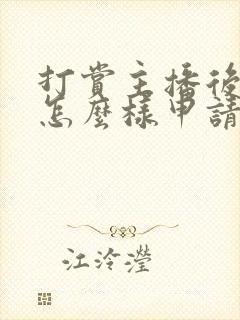 打賞主播後
怎麼樣申請
江泠瀅